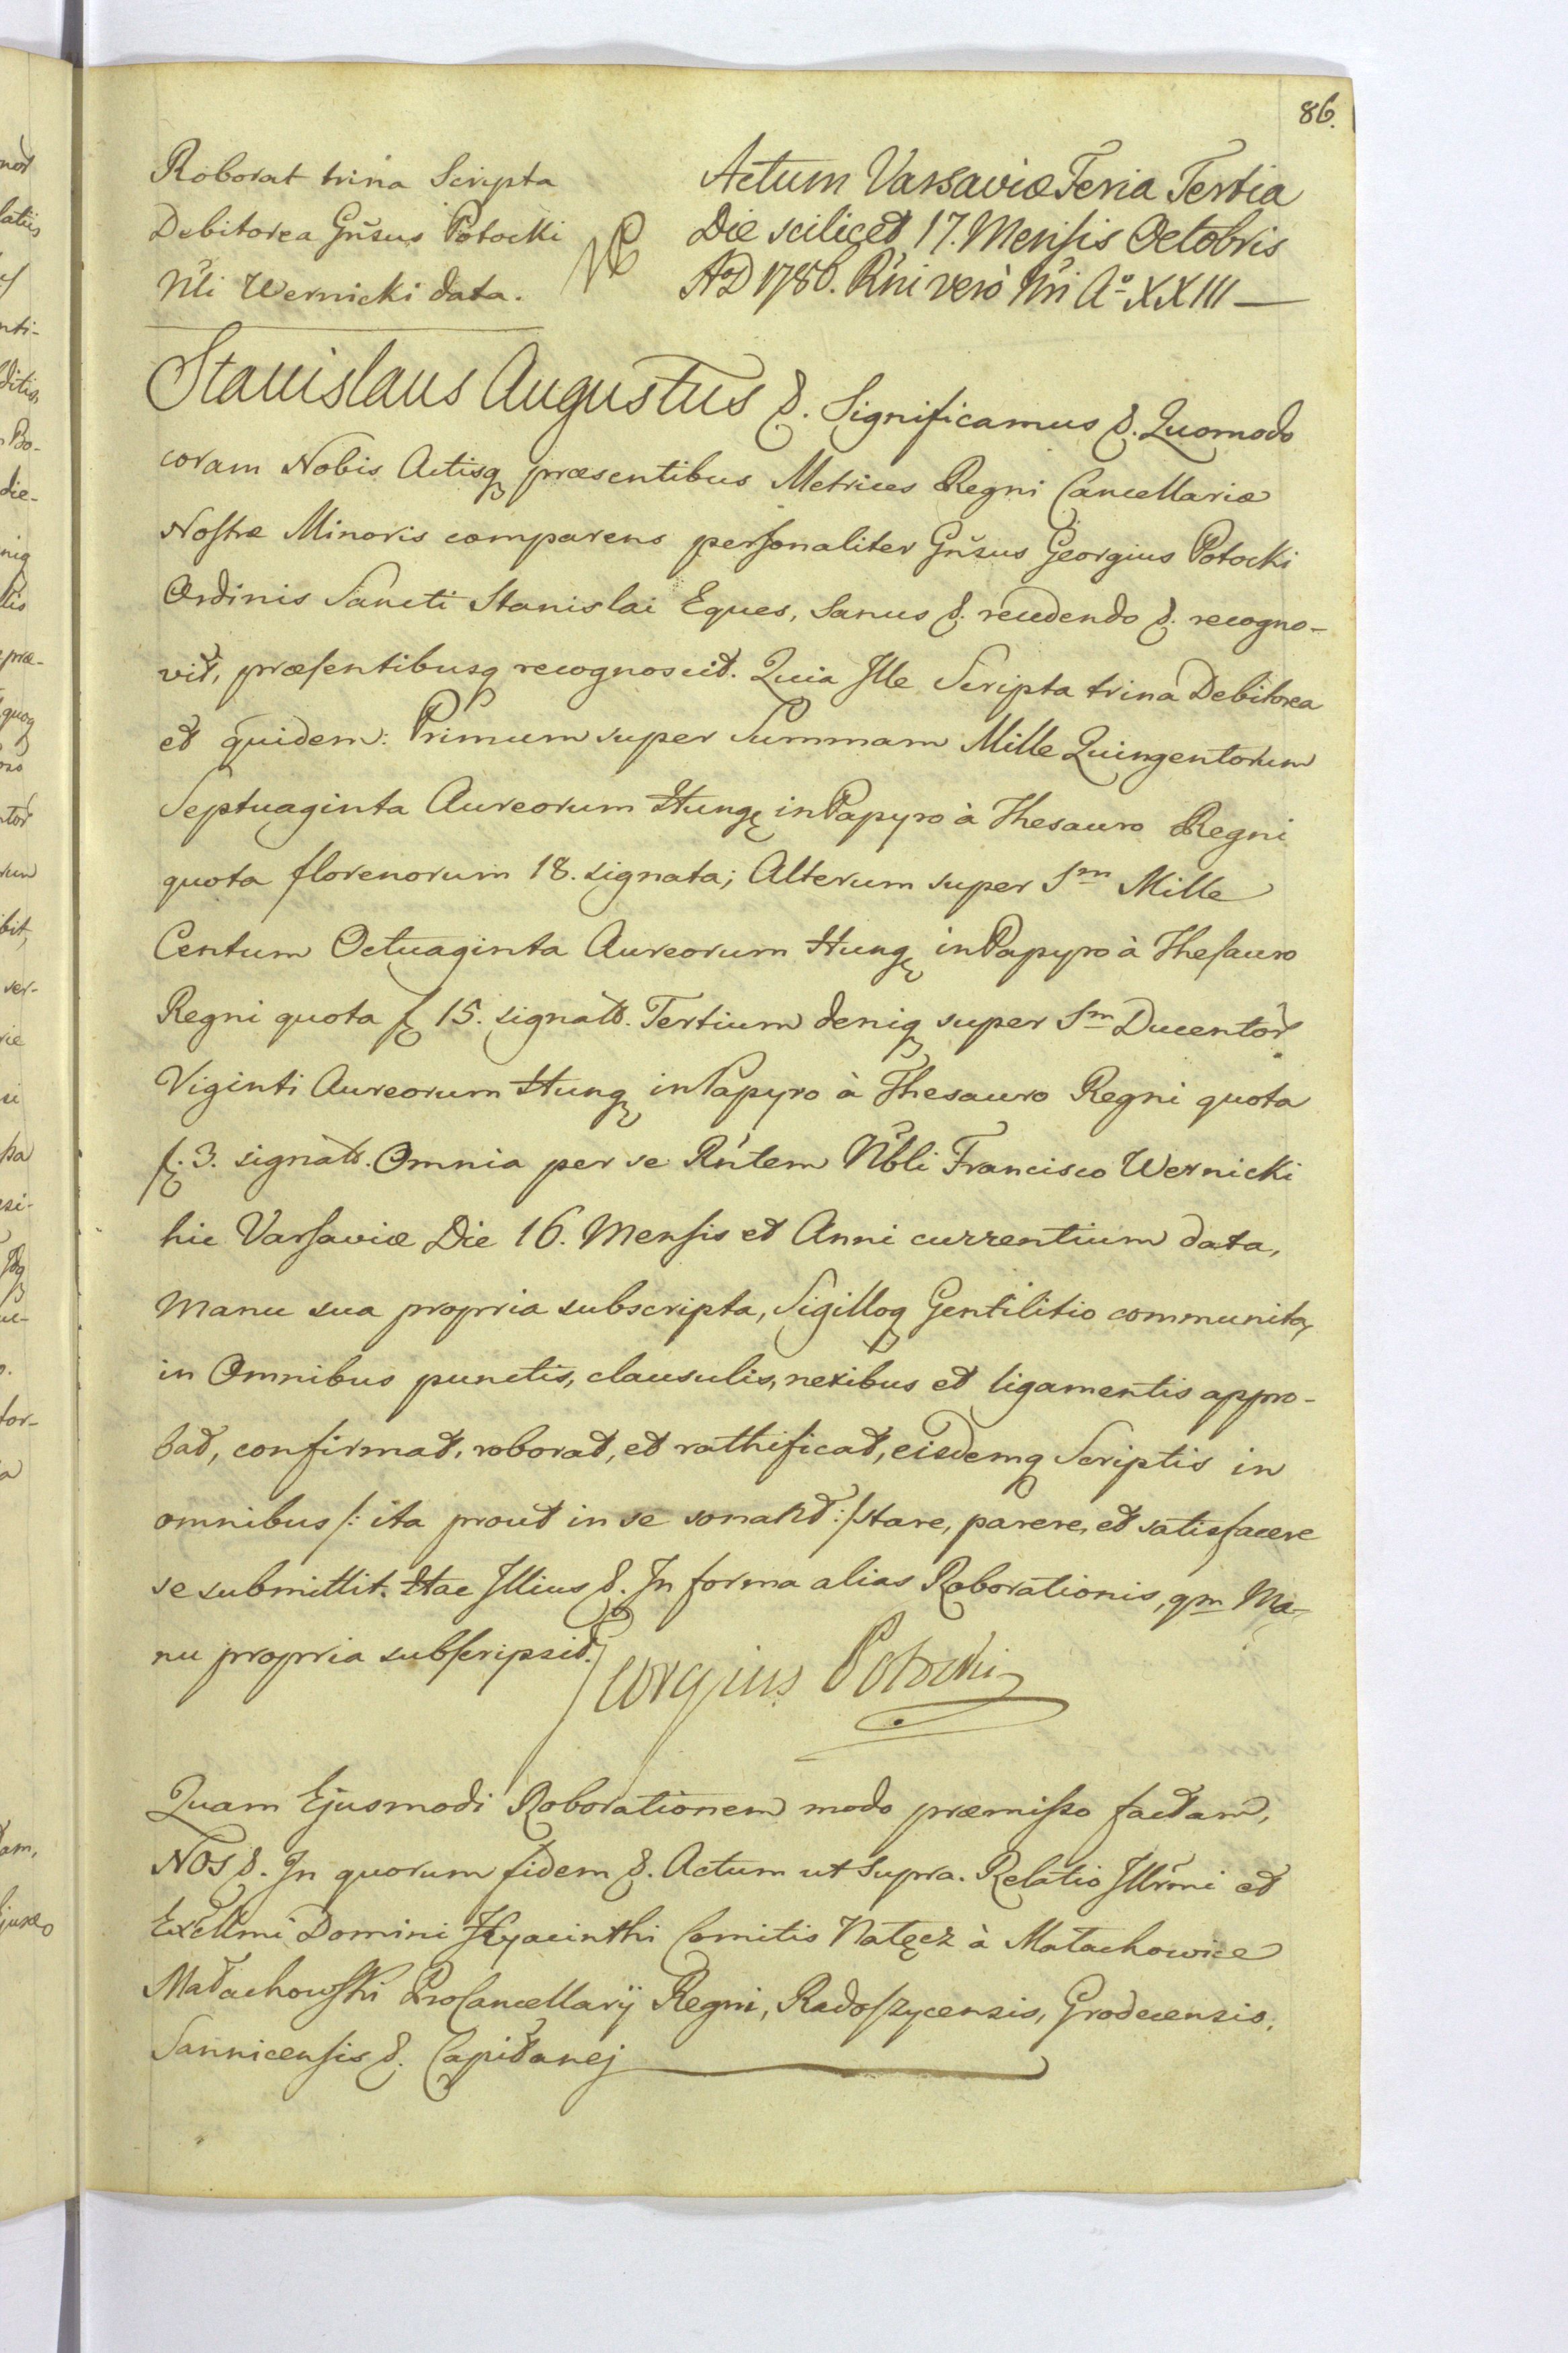 86.
Roborat trina Scripta
Debitorea Gñsus Potocki
Nli Wernicki data.
Actum Varsaviæ Feria Tertia
Die scilicet 17. Mensis Octobris
AoD 1786. Rni verò Nri Aº XXIII
Stanislaus Augustus &. Significamus &. Quomodo
coram Nobis Actisq præsentibus Metrices Regni Cancellariæ
Nostræ Minoris comparens personaliter Gñsus Georgius Potocki
Ordinis Sancti Stanislai Eques, Sanus &. recedendo &. recogno-
vit, præsentibusq recognoscit. Quia Ille Scripta trina Debitorea
et quidem: Primum super Summam Mille Quingentorum
Septuaginta Aureorum Hung in Papyro à Thesauro Regni
quota florenorum 18. signata; Alterum super Sm Mille
Centum Octuaginta Aureorum Hung in Papyro à Thesauro
Regni quota f 15. signatt. Tertium deniq super Sm Ducentor
Viginti Aureorum Hung in Papyro à Thesauro Regni quota
f. 3. signatt. Omnia per se Rntem Nbli Francisco Wernicki
hic Varsaviæ Die 16. Mensis et Anni currentium data,
Manu sua propria subscripta, Sigilloq Gentilitio communita,
in Omnibus punctis, clausulis, nexibus et ligamentis appro-
bat, confirmat, roborat, et rathificat, eisdemq Scriptis in
omnibus /: ita prout in se sonant :/ stare, parere, et satisfacere
se submittit. Hac Illius &. In forma alias Roborationis, qm Ma-
nu propria subscripsit.
Georgius Potocki
Quam Ejusmodi Roborationem modo præmisso factam,
NOS &. In quorum fidem &. Actum ut supra. Relatio Illrmi et
Excllmi Domini Hyacinthi Comitis Natęcz à Małachowice
Małachowski ProCancellarij Regni, Radoszycensis, Grodecensis,
Sannicensis &. Capitanej